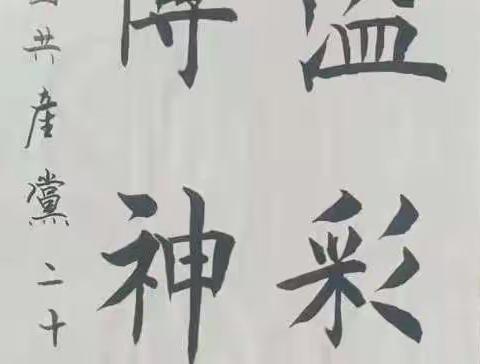 溢彩
神
共產黨二十